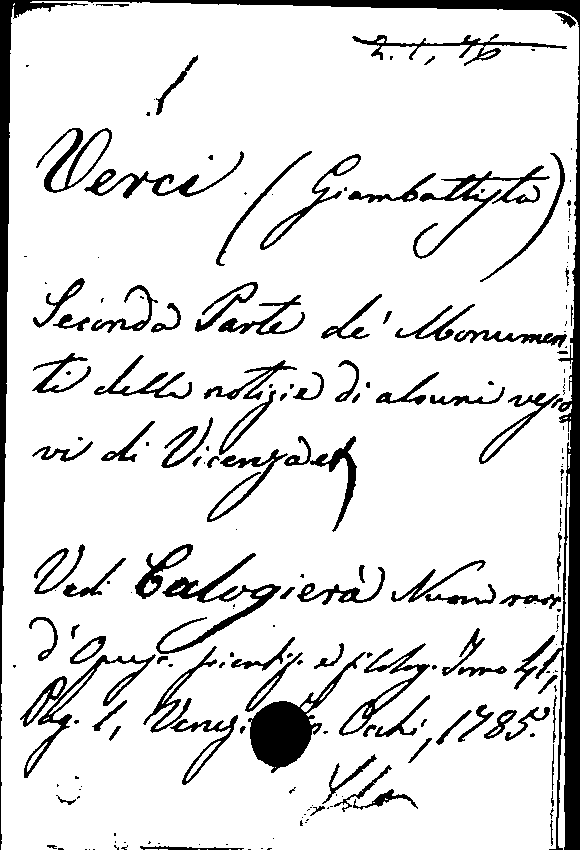 2. 1, 76
Verci (Giambattista)
Seconda Parte de' Monumen-
ti della notizie di alcuni vesco=
vi di Vicenza
Vedi Calogierà Nuova racc.
d'Opusc. scientif. ed filolog. Tomo 41,
Pag. 1, Venezi p. Occhi, 1785.